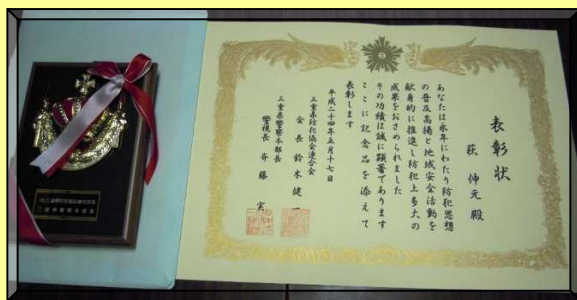 表彰状
萩 伸元 殿
あなたは永年にわたり防犯思想
の普及高揚と地域安全活動を
献身的に推進し防犯上多大の
成果をおさめられました
その功績は誠に顕著であります
ここに記念品を添えて
表彰します
平成二十四年五月十七日
三重県防犯協会連合会
会長 鈴木健一
三重県警察本部長
警視長 斉藤 実